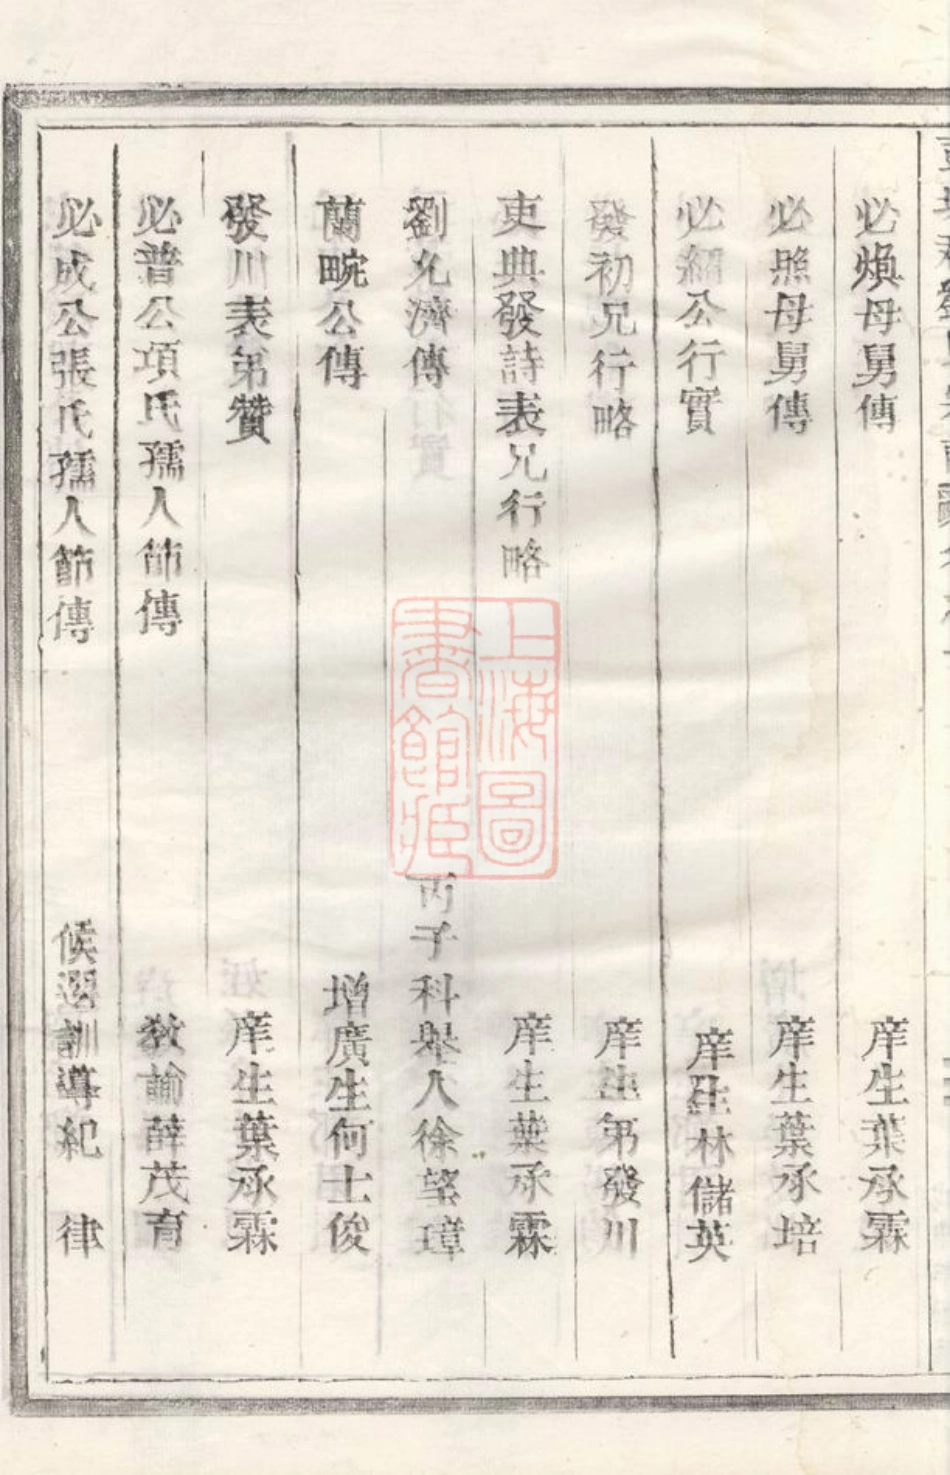 必煥母舅傳 庠生葉承霖
必照母舅傳 庠生葉承培
必紹公行實 庠生林儲英
發初兄行略 庠生弟發川
吏典發詩表兄行略 庠生葉承霖
劉允濟傳 丙子科舉人徐望璋
蘭畹公傳 增廣生何士俊
發川表弟贊 庠生葉承霖
必普公項氏孺人節傳 教諭薛茂育
必成公張氏孺人節傳 候選訓導紀 律
上海圖
書館藏